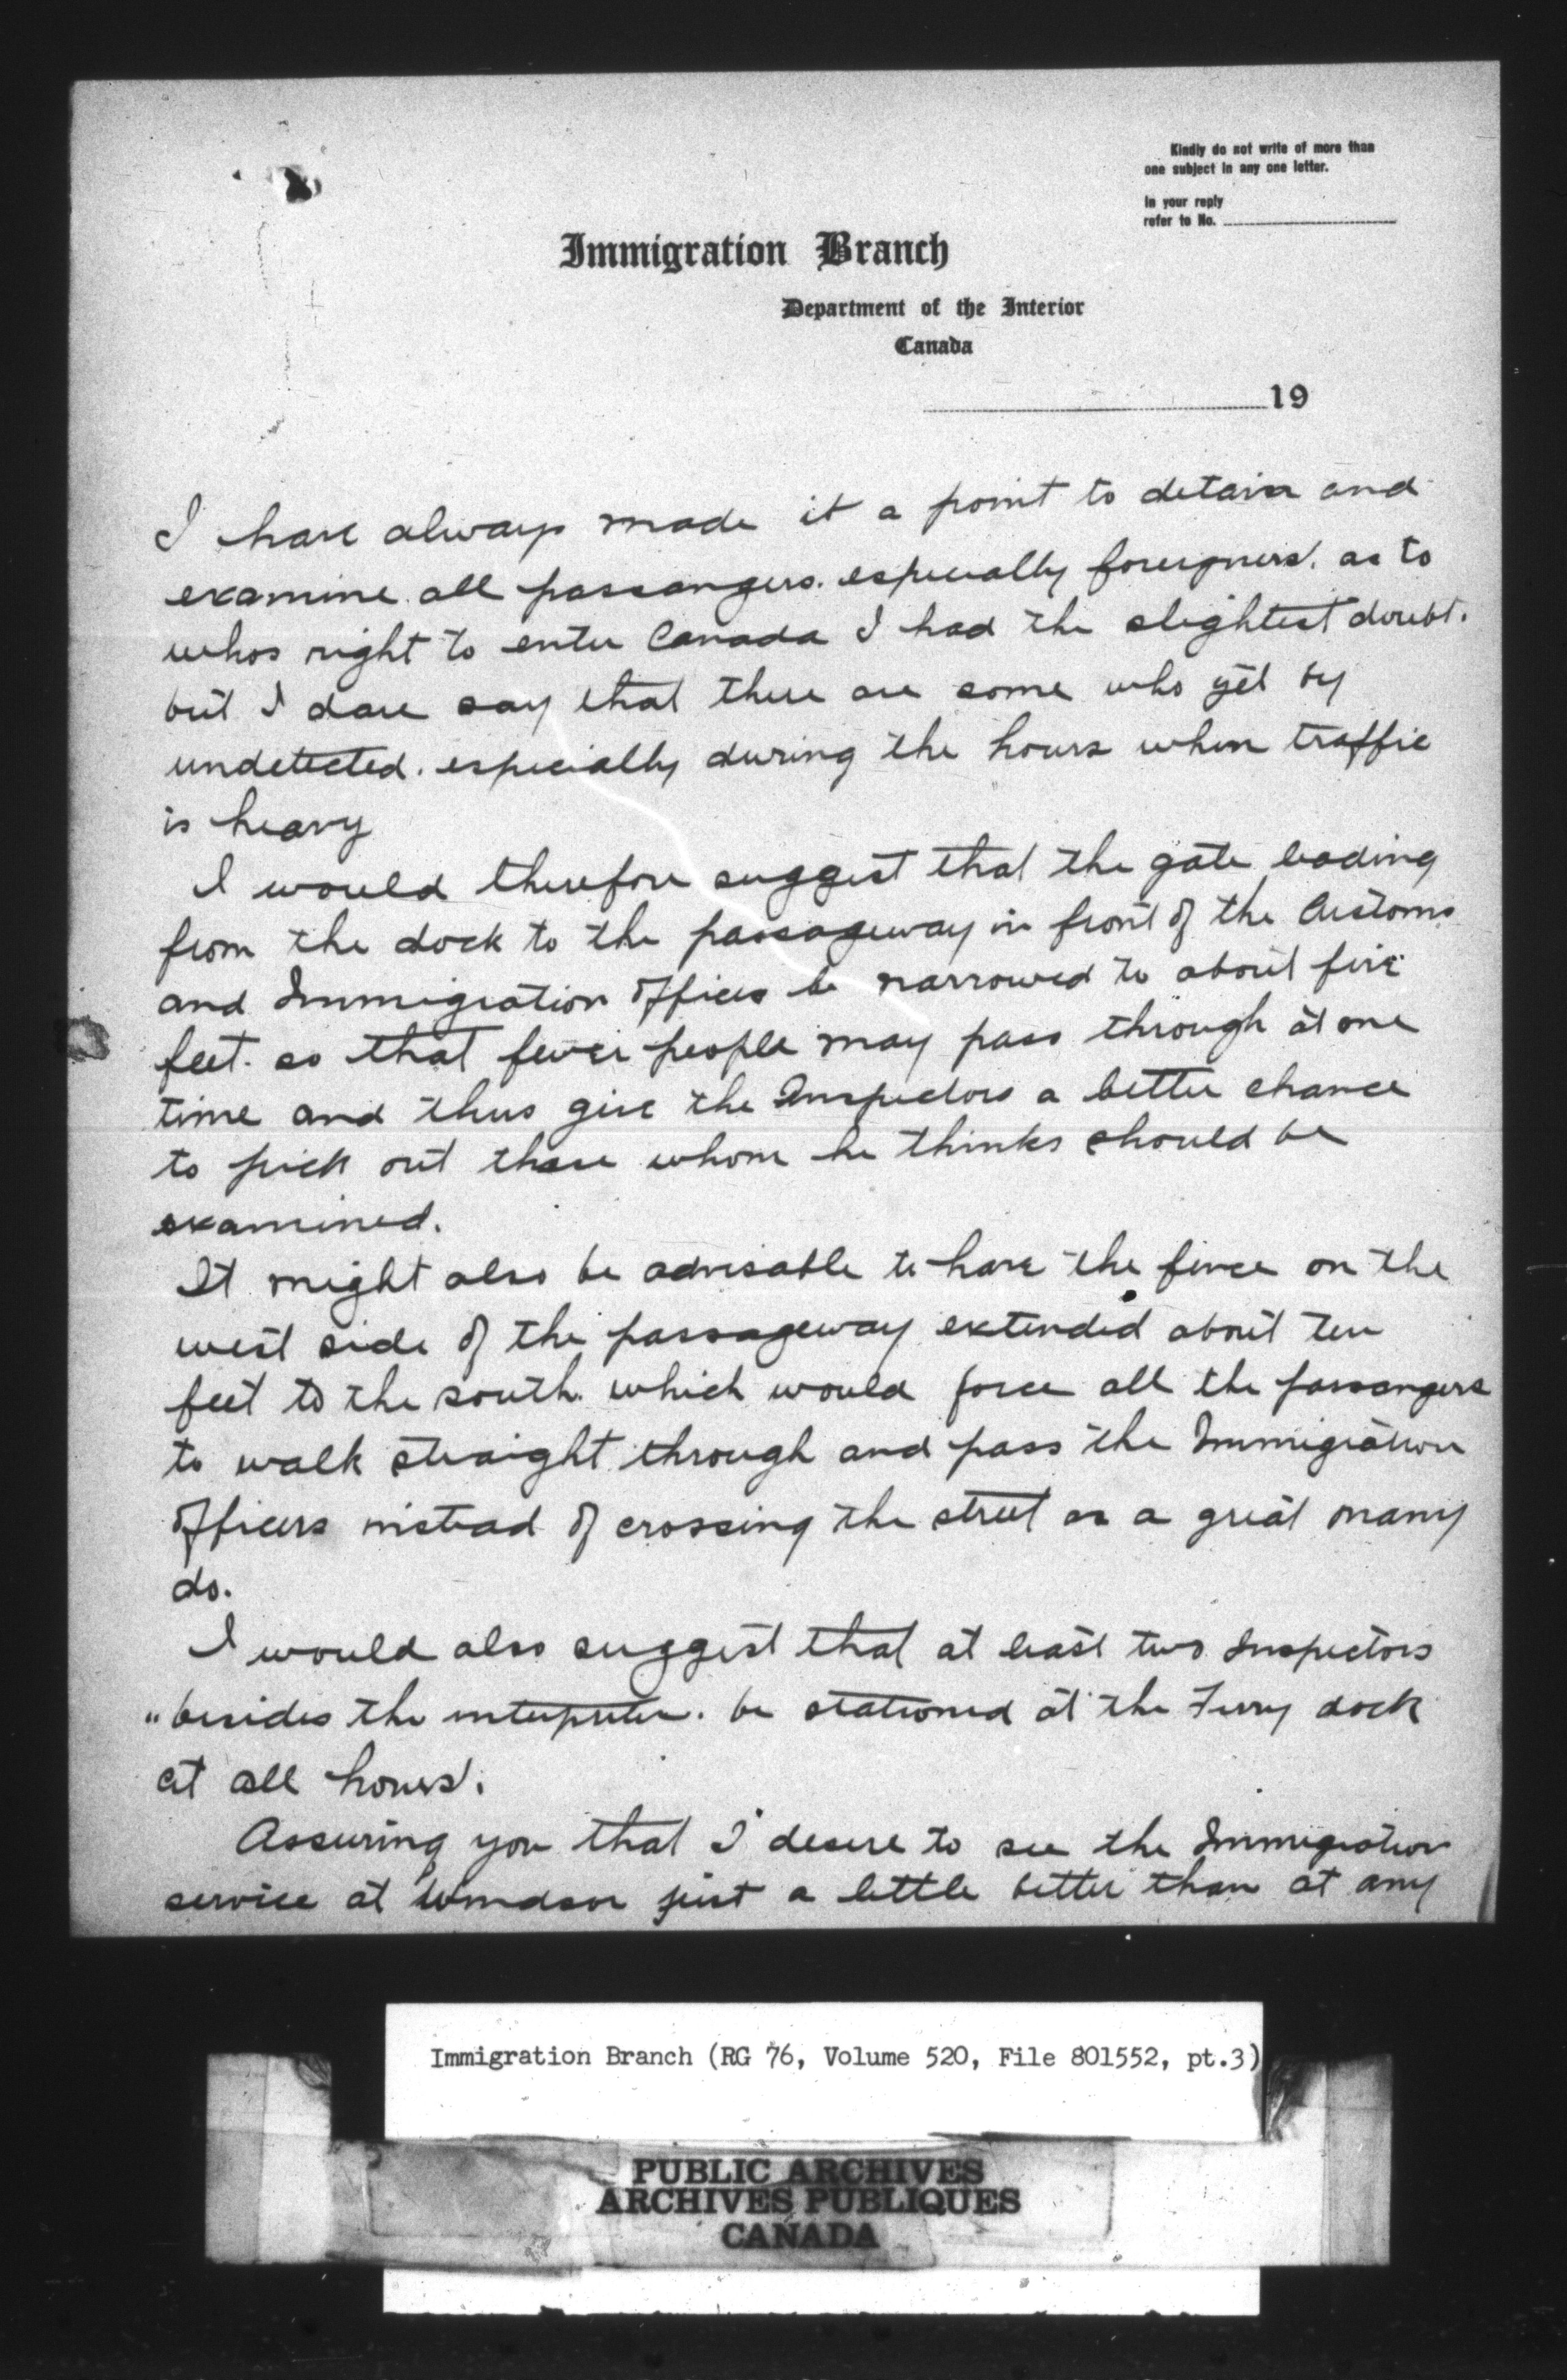 Kindly do not write of more than
one subject in any one letter.
In your reply
refer to No.
Immigration Branch
Department of the Interior
Canada
19
I have always made it a point to detain and
examine all passangers. especially foreigners. as to
whos right to enter Canada I had the slightest doubt.
but I dare say that there are some who get by
undetected. especially during the hours when traffic
is heavy
I would therefore suggest that the gate leading
from the dock to the passageway in front of the Customs
and Immigration Offices be narrowed to about five
feet. so that fewer people may pass through at one
time and thus give the Inspectors a better chance
to pick out those whom he thinks should be
examined.
It might also be advisable to have the fence on the
west side of the passageway extended about ten
feet to the south which would force all the passangers
to walk straight through and pass the Immigration
Officers instead of crossing the street as a great many
do.
I would also suggest that at least two Inspectors
" besides the interpreter. be stationed at the Ferry dock
at all hours.
Assuring you that I desire to see the Immigration
service at Windsor just a little better than at any
Immigration Branch (RG 76, Volume 520, File 801552, pt.3)
PUBLIC ARCHIVES
ARCHIVES PUBLIQUES
CANADA